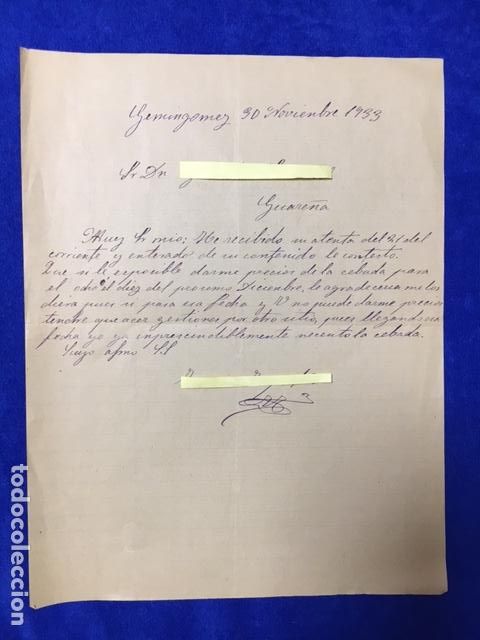 Gemingomez 30 Noviembre 1933
Sr Dn
Guareña
Muez Sr mio: He recibido su atenta del 21 del
corriente y enterado de su contenido le contesto.
Que si le es posible darme precios de la cebada para
el ocho o el diez del proximo Diciembre, le agradeceria me los
diera pues si para esa fecha y V no puede darme precios
tendre que acer gestiones por otro sitio, pues llegando esa
fecha yo ya imprescindiblemente necesito la cebada.
Suyo afmo S.S
todocoleccion.net